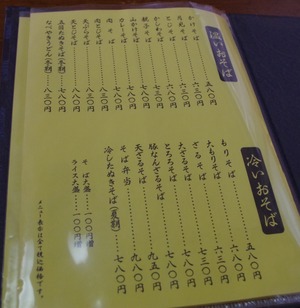 温いおそば
かけそば………五八〇円
月見そば………六三〇円
とじそば………六八〇円
かしわそば………七八〇円
親子そば………八三〇円
山かけそば………七八〇円
カレーそば………七八〇円
肉そば………七八〇円
肉とじそば………八三〇円
天ぷらそば………七八〇円
天とじそば………八三〇円
五目たぬきそば(冬期)…七八〇円
なべやきうどん(冬期)…八三〇円
冷いおそば
もりそば………五八〇円
大もりそば………六八〇円
ざるそば………六三〇円
大ざるそば………七三〇円
とろろそば………七八〇円
豚なんざるそば………九五〇円
天ざるそば………九八〇円
そば弁当………七八〇円
冷したぬきそば(夏期)…七八〇円
そば大盛……一〇〇円増
ライス大盛…一〇〇円増
メニュー表示は全て税込価格です。